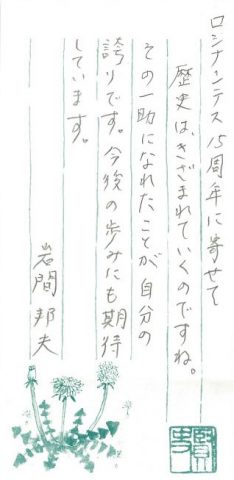 ロシナンテス15周年に寄せて
歴史は、きざまれていくのですね。
その一助になれたことが自分の
誇りです。今後の歩みにも期待
しています。
岩間 邦夫